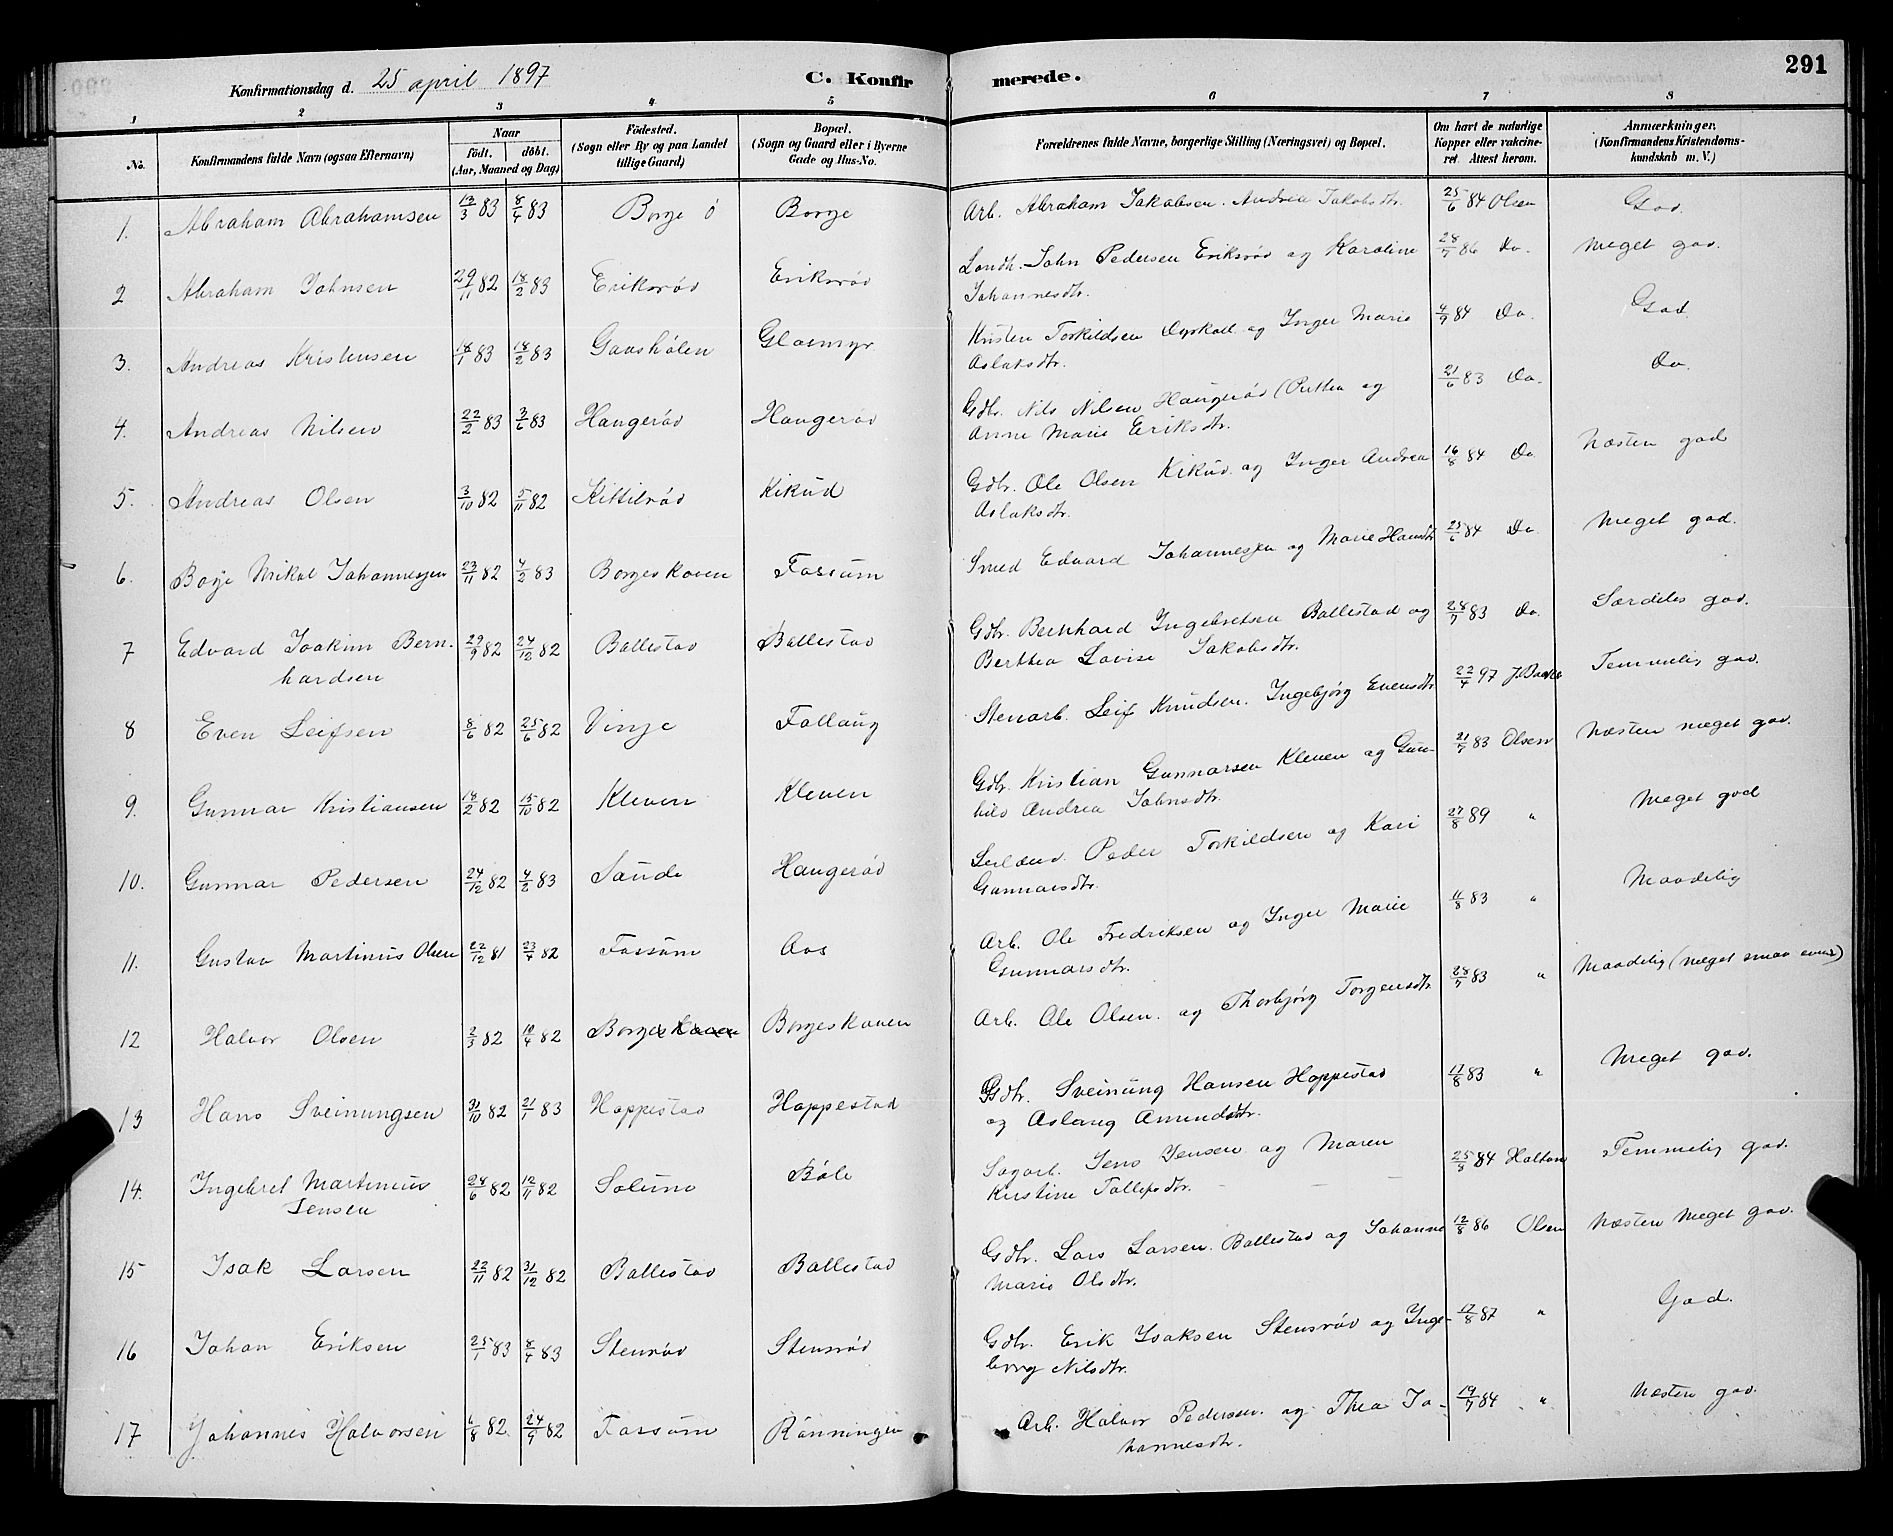 Konfirmationsdag d. 25 april 1897 C. Konfirmerede. 291
1 2 3 4 5 6 7 8
No. Konfirmandens fulde Navn (ogsaa Efternavn) Naar født. døbt. (Aar, Maaned og Dag) Fødested. (Sogn eller By og paa Landet tillige Gaard) Bopæl. (Sogn og Gaard eller i Byerne Gade og Hus-No. Forældrenes fulde Navne, borgerlige Stilling (Næringsvei) og Bopæl. Om havt de naturlige Kopper eller vaccineret Attest herom. Anmærkninger. (Konfirmandens Kristendomskundskab m. V.)
1. Abraham Abrahamsen 13/3 83 8/4 83 Borge ö Borge Arb. Abraham Jakobsen. Andrea Jakobsdtr. 25/6 84 Olsen God.
2 Abraham Johnsen 29/11 82 18/2 83 Eriksrød Eriksrød Landh. John Pedersen Eriksrød og Karoline 28/7 86 Do. Meget god.
Johannesdtr.
3. Andreas Kristensen 18/1 83 18/2 83 Gaashølen Glasmyr Kristen Torkildsen og Inger Marie 4/9 84 Do. God
Aslaksdtr.
4. Andreas Nilsen 22/2 83 3/6 83 Haugerød Haugerød Gdbr. Nils Nilsen Haugerød og 21/6 83 Do. Do.
Anne Marie Eriksdtr.
5. Andreas Olsen 3/10 82 5/11 82 Kittilrød Kikud Gdbr. Ole Olsen Kikud og Inger Andrea 16/8 84 Do Næsten god
Aslaksdtr.
6. Borje Nikol Johannesen 23/11 82 4/2 83 Borgeskoven Fossum Smed Edvard Johannesen og Marie Hansdtr 25/6 84 Do Meget god.
7 Edvard Joakim Bern- 29/9 82 24/12 82 Ballestad Ballestad Gdbr. Bernhard Ingebretsen Ballestad og 28/7 83 Do. Særdeles god.
hardsen Berthea Lovise Jakobsdtr.
8 Even Leifsen 8/6 82 25/6 82 Vinje Follaug Stenarb. Leif Knudsen. Ingebjørg Evensdtr 22/4 97 Temmelig god.
9. Gunnar Kristiansen 18/2 82 15/10 82 Kleven Kleven Gdbr. Kristian Gunnarsen Kleven og Gun- 21/7 83 Olsen Næsten meget god.
hild Andrea Johnsdtr.
10. Gunnar Pedersen 24/12 82 4/2 83 Saude Haugerød Peder Torkildsen og Kari 27/8 89 " Meget god
Gunnarsdtr.
11. Gustav Martinius Olsen 22/12 81 23/4 82 Fossum Aas Arb. Ole Fredriksen og Inger Marie 11/8 83 " Maadelig
Gunnarsdtr.
12 Halvor Olsen 2/3 82 10/4 82 Borgeskoven Borgeskoven Arb. Ole Olsen. og Thorbjørg Torgersdtr 28/7 83 " Maadelig (meget smaa evner)
13 Hans Sveinungsen 31/10 82 21/1 83 Hoppestad Hoppestad Gdbr. Sveinung Hansen Hoppestad 11/8 83 " Meget god.
og Aslaug Amundsdtr.
14. Ingebret Martinius 28/6 82 12/11 82 Solum Bøle Sagarb. Jens Jensen og Maren 25/8 84 Temmelig god.
Jensen Kirstine Tollefsdtr.
15 Isak Larsen 22/11 82 31/12 82 Ballestad Ballestad Gdbr. Lars Larsen. Ballestad og Johanne 12/8 86 Olsen Næsten Meget god.
Marie Olsdtr.
16 Johan Eriksen 25/1 83 8/4 83 Stensrød Stensrød Gdbr. Erik Isaksen Stensrød og Inge- 17/8 87 " God.
borg Nilsdtr.
17 Johannes Halvorsen 6/8 82 24/9 82 Fossum Rønningen Arb. Halvor Pedersen. og Thea Jo- 19/7 84 " Næsten god.
hannesdtr.